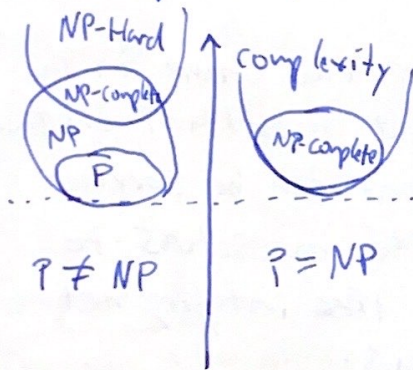 NP-Hard
NP-complete
NP
P
P ≠ NP
complexity
NP-complete
P = NP